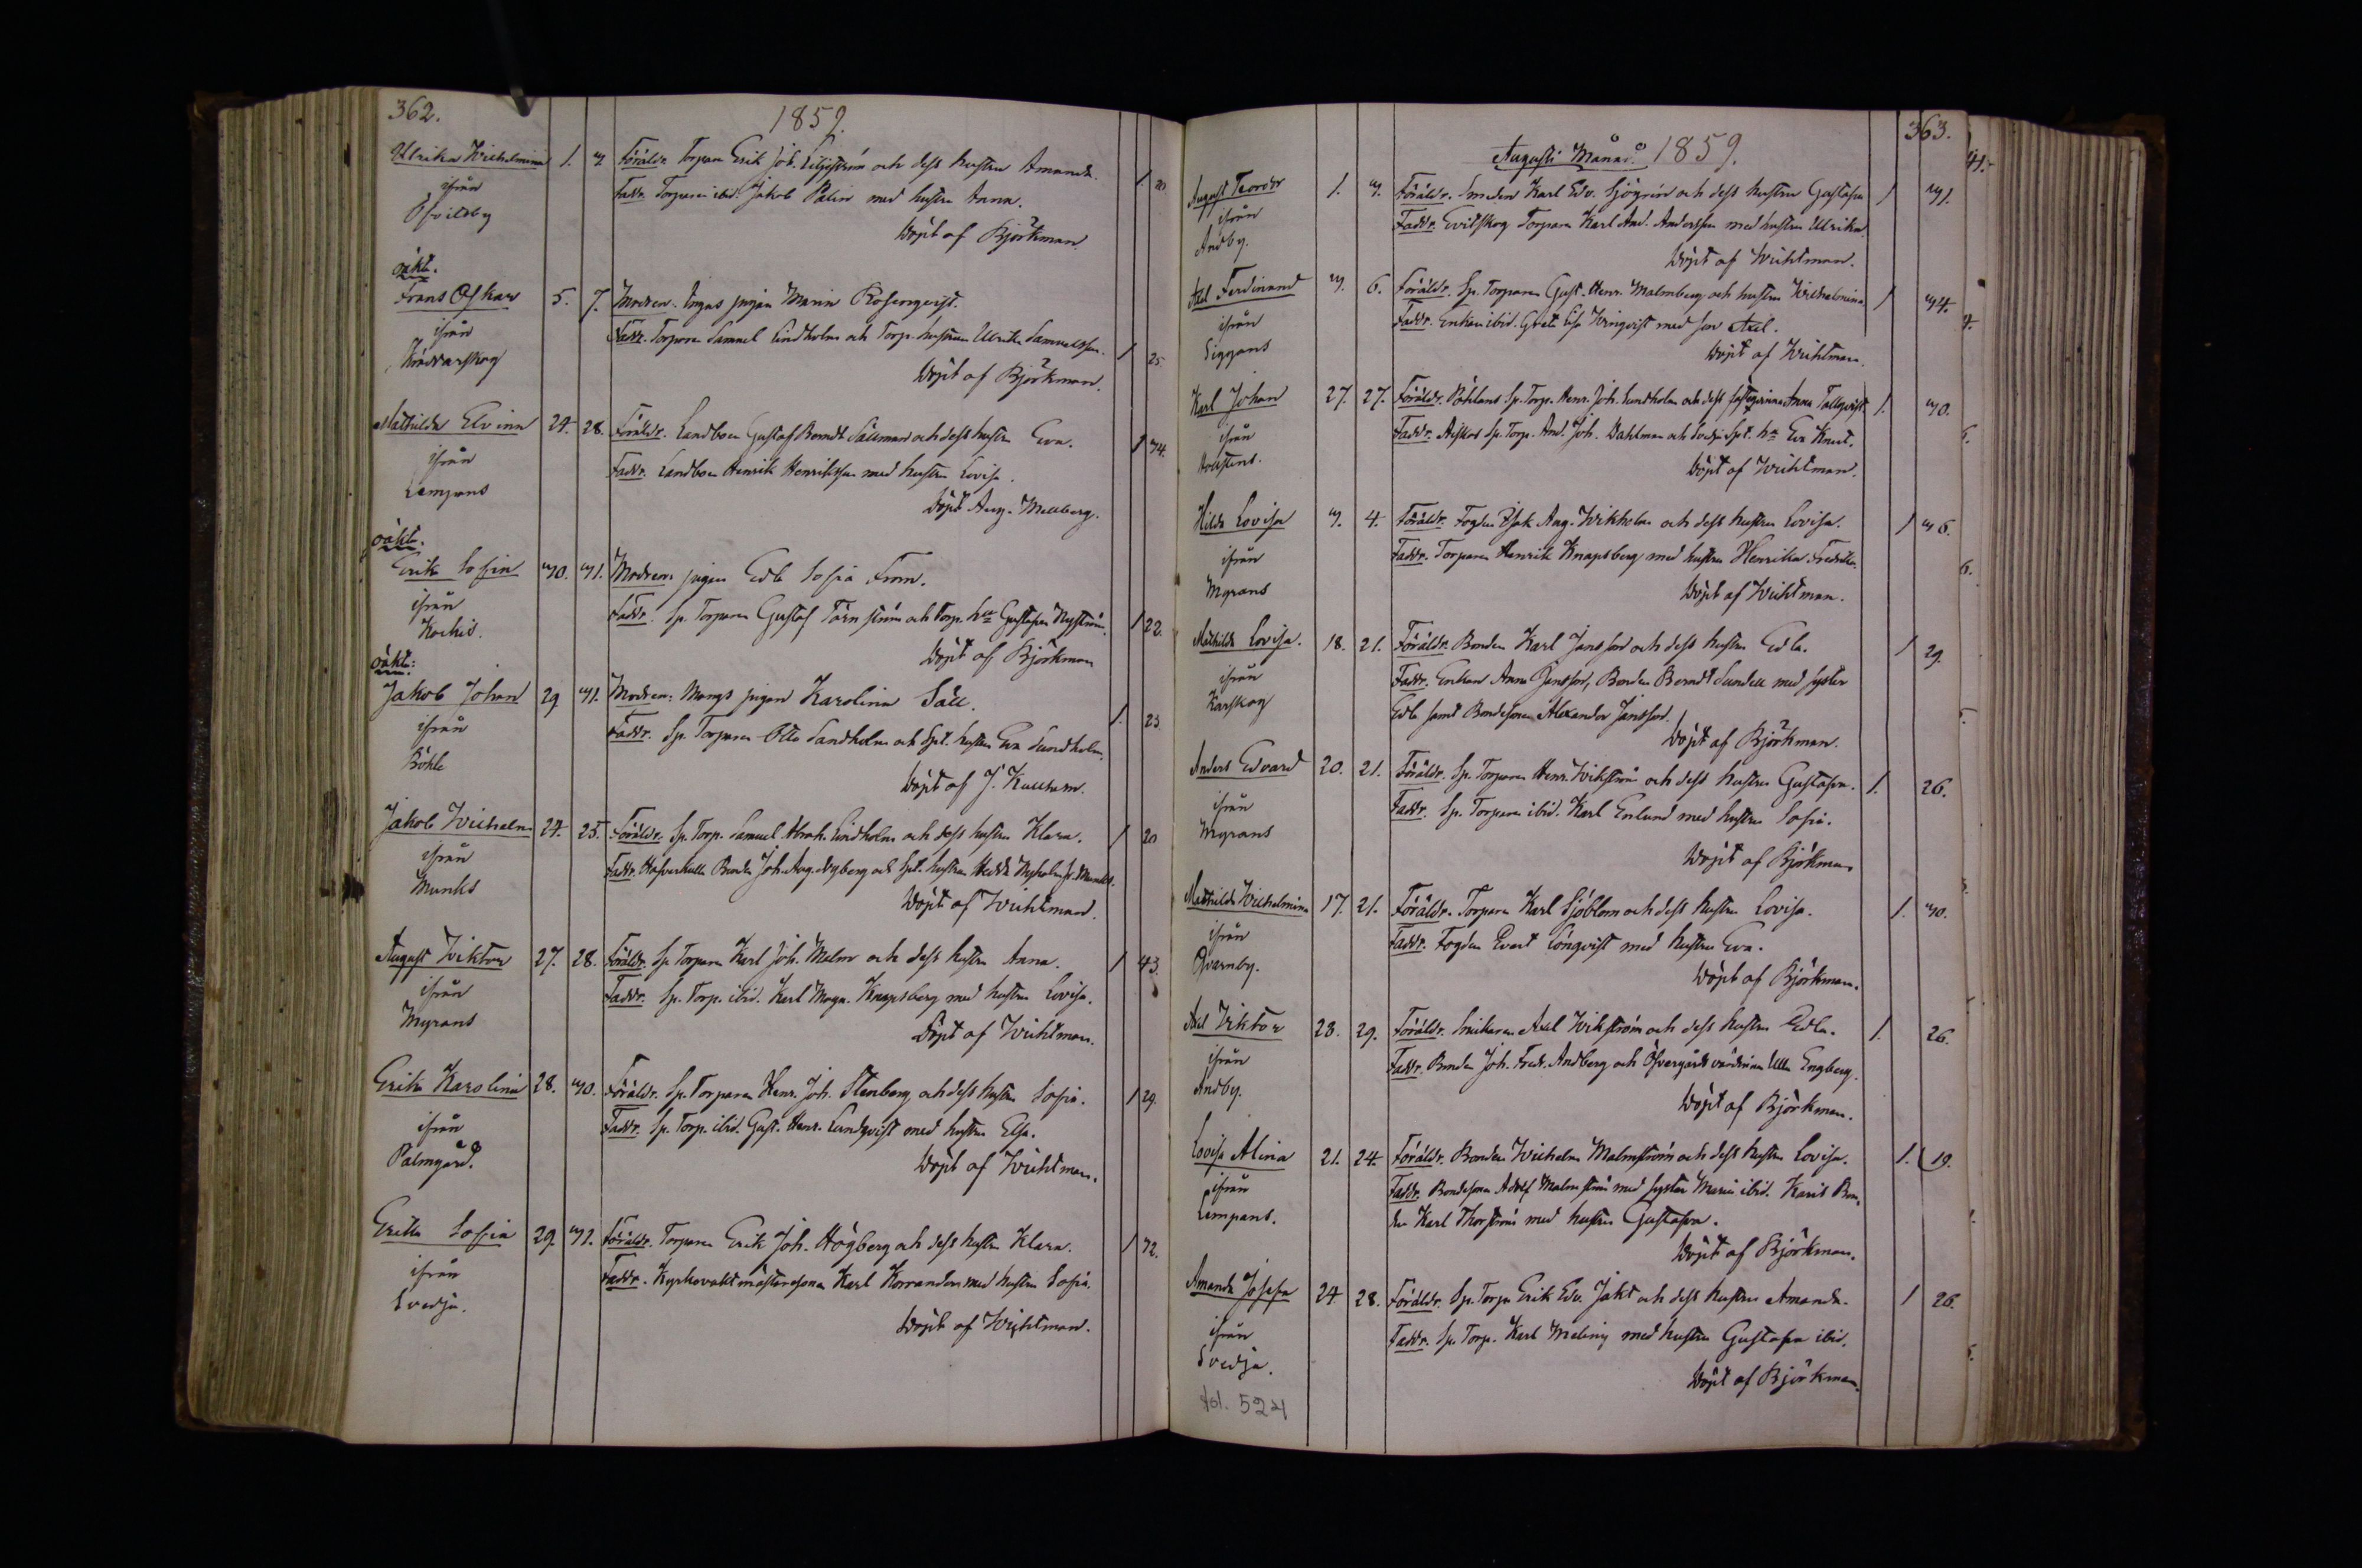 362.
1859.
Ulrika Wilhelmina 1. Föräldr. Torparen Erik Joh. Liljeström och dess hustru Amanda. 1
ifrån Faddr. Torparen ibid. Jakob Palin med hustru Anna.
Öfvitsby
Döpt af Björkman
oäkt.
Frans Oskar 5. 7. Modren. pigan Maria Rosenqvist.
ifrån Faddr. Torparen Samuel Lindholm och Torp. hustrun Ulrika Samuelsson. 1 25.
Döpt af Björkman.
Mathilda Elvina 24. 28. Föräldr. Landbon Gustaf Berndt Sällman och dess hustru Eva. 1
ifrån Faddr. Landbon Henrik Henriksson med hustru Lovisa.
Lempans
Döpt Aug. Mellberg.
oäkt.
Erika Sofia Modren: pigan Edla Sofia From.
ifrån Faddr. Sp. Torparen Gustaf Törnström och Torp. hu Gustafva Nyström. 1 22.
Kockis.
Döpt af Björkman
oäkt:
Jakob Johan 29 Modren: Mangs pigan Karolina Säll.
ifrån Faddr. Sp. Torparen Otto Sandholm och Spt. hustru Eva Sundholm. 1. 23
Böhle
Döpt af J.
Jakob Wilhelm 24. 25. Föräldr. Sp. Torp. Samuel Abrah. Lindholm och dess hustru Klara. 1 20
ifrån Faddr. Bonden Joh. Aug. Nyberg och Spt. hustrun Hedda Nyholm fr. Munks.
Munks
Döpt af Wichtman.
August Wiktor 27. 28. Föräldr. Sp. Torparen Karl Joh. Malm och dess hustru Anna. 1 43.
ifrån Faddr. Sp. Torp. ibid. Karl Magn. Knapsberg med hustru Lovisa.
Myrans
Döpt af Wichtman.
Erika Karolina 28. Föräldr. Sp. Torparen Henr. Joh. Stenberg och dess hustru Sofia. 1 29.
ifrån Faddr. Sp. Torp. ibid. Gust. Henr. Lundqvist med hustru Elsa.
Palmgård.
Döpt af Wichtman.
Erika Sofia 29. Föräldr. Torparen Erik Joh. Högberg och dess hustru Klara. 1
ifrån Faddr. Kyrkovaktmästaresonen Karl Korrander med hustru Sofia.
Svedja.
Döpt af Wichtman.
363.
Augusti Månad. 1859.
August Teodor 1. Föräldr. Smeden Karl Edv. Sjögrén och dess hustru Gustafva 1
ifrån Faddr. Evitskog Torparen Karl And. Andersson med hustru Ulrika
Andby.
Döpt af Wichtman.
Axel Ferdinand 6. Föräldr. Sp. Torparen Gust. Henr. Malmberg och hustru Wilhelmina. 1
ifrån Faddr. Enkan ibid. Greta Lisa med son Axel.
Siggans
Döpt af Wichtman.
Karl Johan 27. 27. Föräldr. Påhlans Sp. Torp. Henr. Joh. Lundholm och dess Anna Tallqvist. 1.
ifrån Faddr. Sp. Torp. And. Joh. Dahlman och Svedja Spt. hu Eva Knut.
Döpt af Wichtman.
Hilda Lovisa 4. Föräldr. Fogden Isak Aug. Wikholm och dess hustru Lovisa. 1
ifrån Faddr. Torparen Henrik Knapsberg med hustru Henrika Fredrika.
Myrans
Döpt af Wichtman.
Mathilda Lovisa. 18. 21. Föräldr. Bonden Karl Jansson och dess hustru Edla. 1 29.
ifrån Faddr. Enkan Anna Jansson, Bonden Berndt Sundell med syster
Karskog Edla samt Bondesonen Alexander Jansson.
Döpt af Björkman.
Anders Edvard 20. 21. Föräldr. Sp. Torparen Henr. Wikström och dess hustru Gustafva. 1. 26.
ifrån Faddr. Sp. Torparen ibid. Karl Enlund med hustru Sofia.
Myrans
Döpt af Björkman
Mathilda Wilhelmina 17. 21. Föräldr. Torparen Karl Sjöblom och dess hustru Lovisa. 1.
ifrån Faddr. Fogden Evert Lönqvist med hustru Eva.
Qvarnby.
Döpt af Björkman.
Axel Viktor 28. 29. Föräldr. Snickaren Axel Wikström och dess hustru Edla. 1. 26.
ifrån Faddr. Bonden Joh. Fredr. Andberg och Öfvergårds värdinnan Ulla Engberg.
Andby.
Döpt af Björkman.
Lovisa Alina 21. 24. Föräldr. Bonden Wilhelm Malmström och dess hustru Lovisa. 1. 19.
ifrån Faddr. Bondesonen Adolf Malmström med syster Maria ibid. Karis Bon-
Lempans. den Karl Thorström med hustru Gustafva.
Döpt af Björkman.
Amanda Josefa 24 28. Föräldr. Sp. Torp. Erik Edv. Jakt och dess hustru Amanda. 1 26.
ifrån Faddr. Sp. Torp. Karl Meling med hustru Gustafva ibid.
Svedja.
Döpt af Björkman.
fol. 524